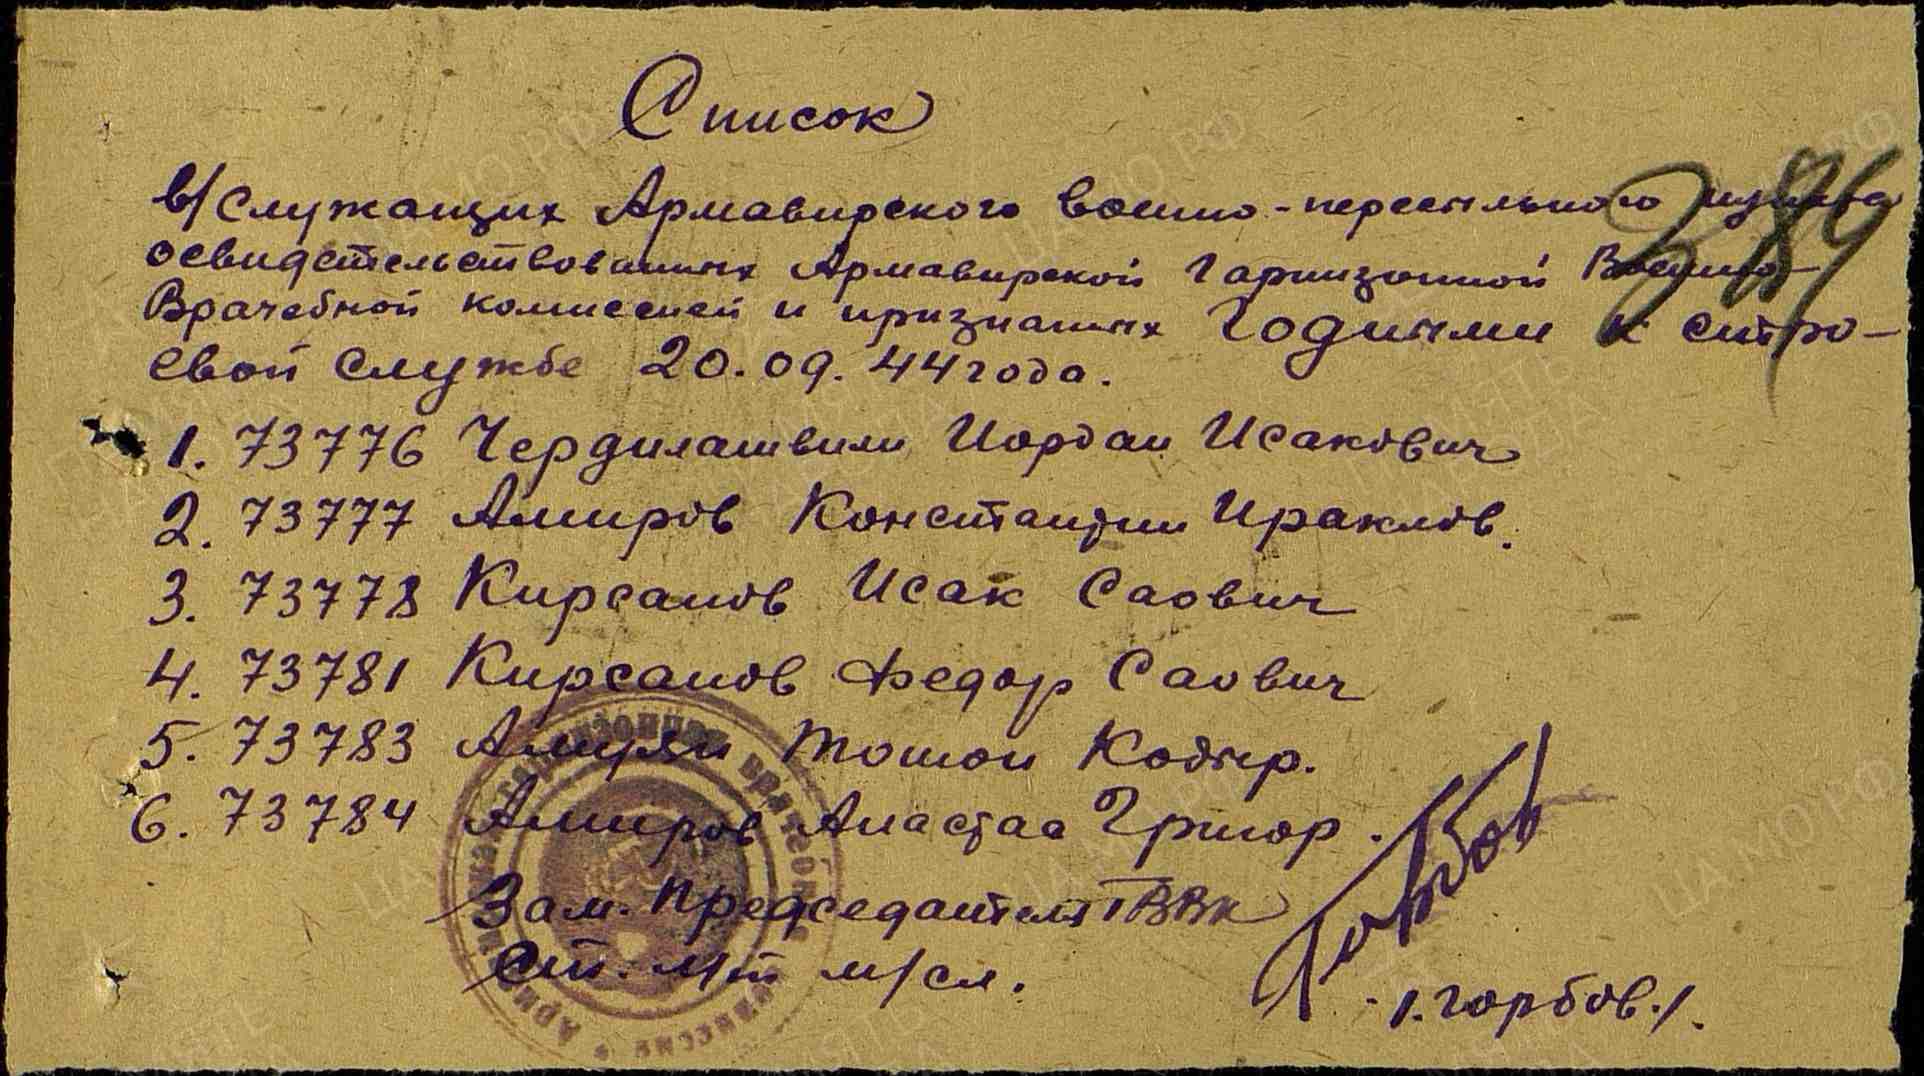 Список
в/служащих Армавирского военно-пересыльного пункта
освидетельствованных Армавирской Гарнизонной Военно-
Врачебной комиссией и признанных Годными к стро-
евой службе 20.09.44 года.
384
1. 73776 Чердилашвили Иордан Исакович
2. 73777 Амиров Константин Ираклов.
3. 73778 Кирсанов Исак Саович
4. 73781 Кирсанов Федор Саович
5. 73783 Тошон Кодыр.
6. 73784 Амиров Анастас Григор.
Зам. Председателя ГВВК
Ст. л-т м/сл.
Горбов
/.Горбов./.